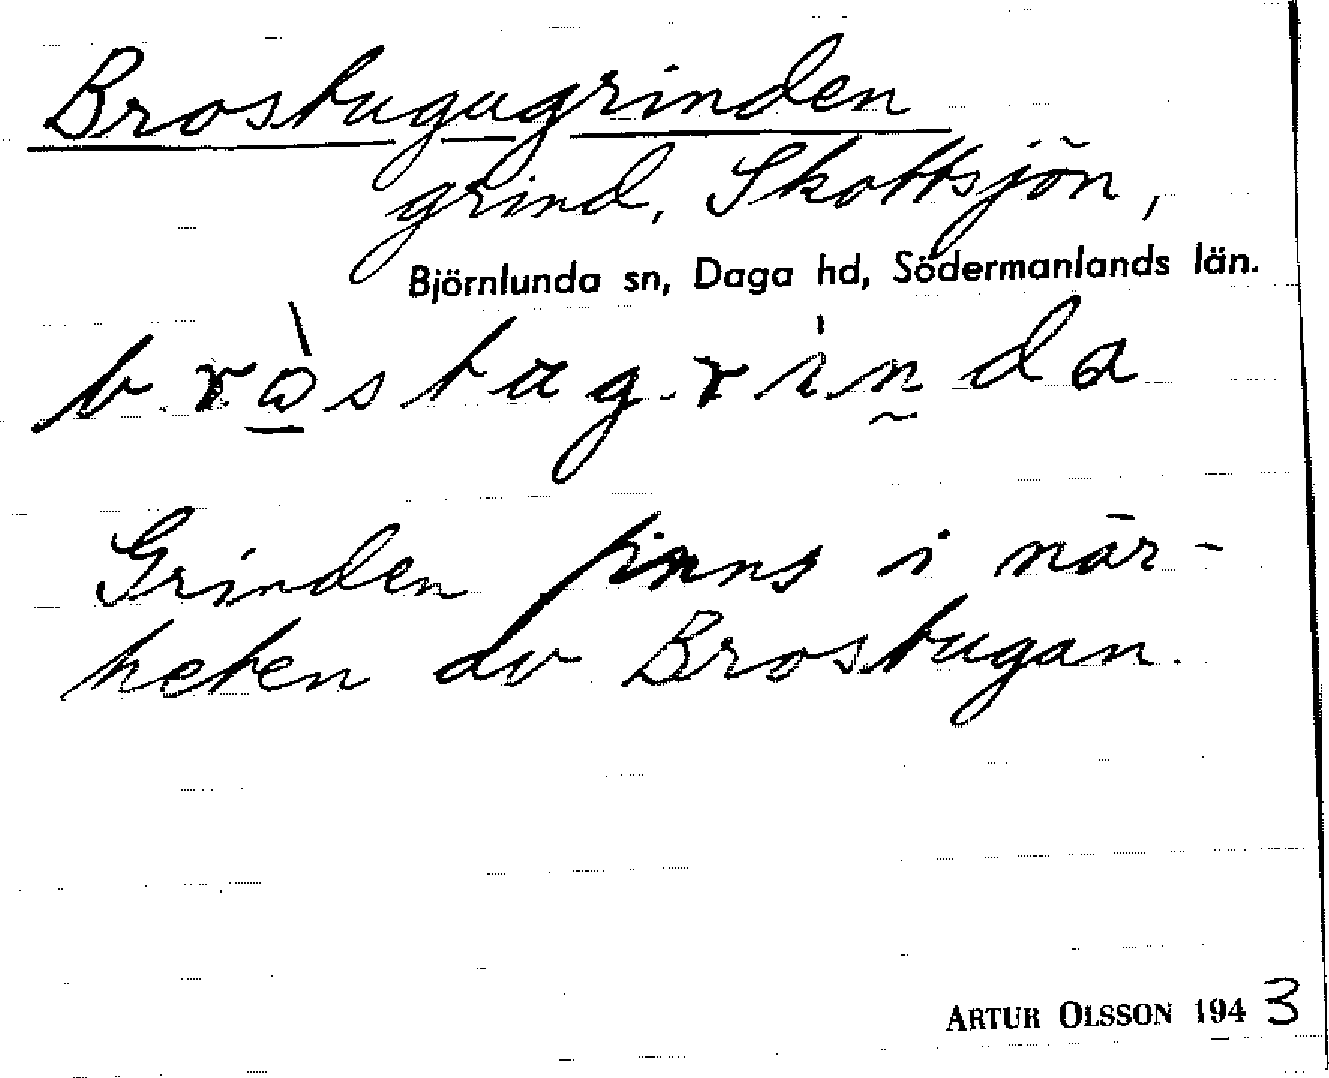 Brostugugrinden
grind, Skottsjön,
Björnlunda sn, Daga hd, Södermanlands län.
bròstugrinda
Grinden finns i när-
heten av Brostugan.
ARTUR OLSSON 1943